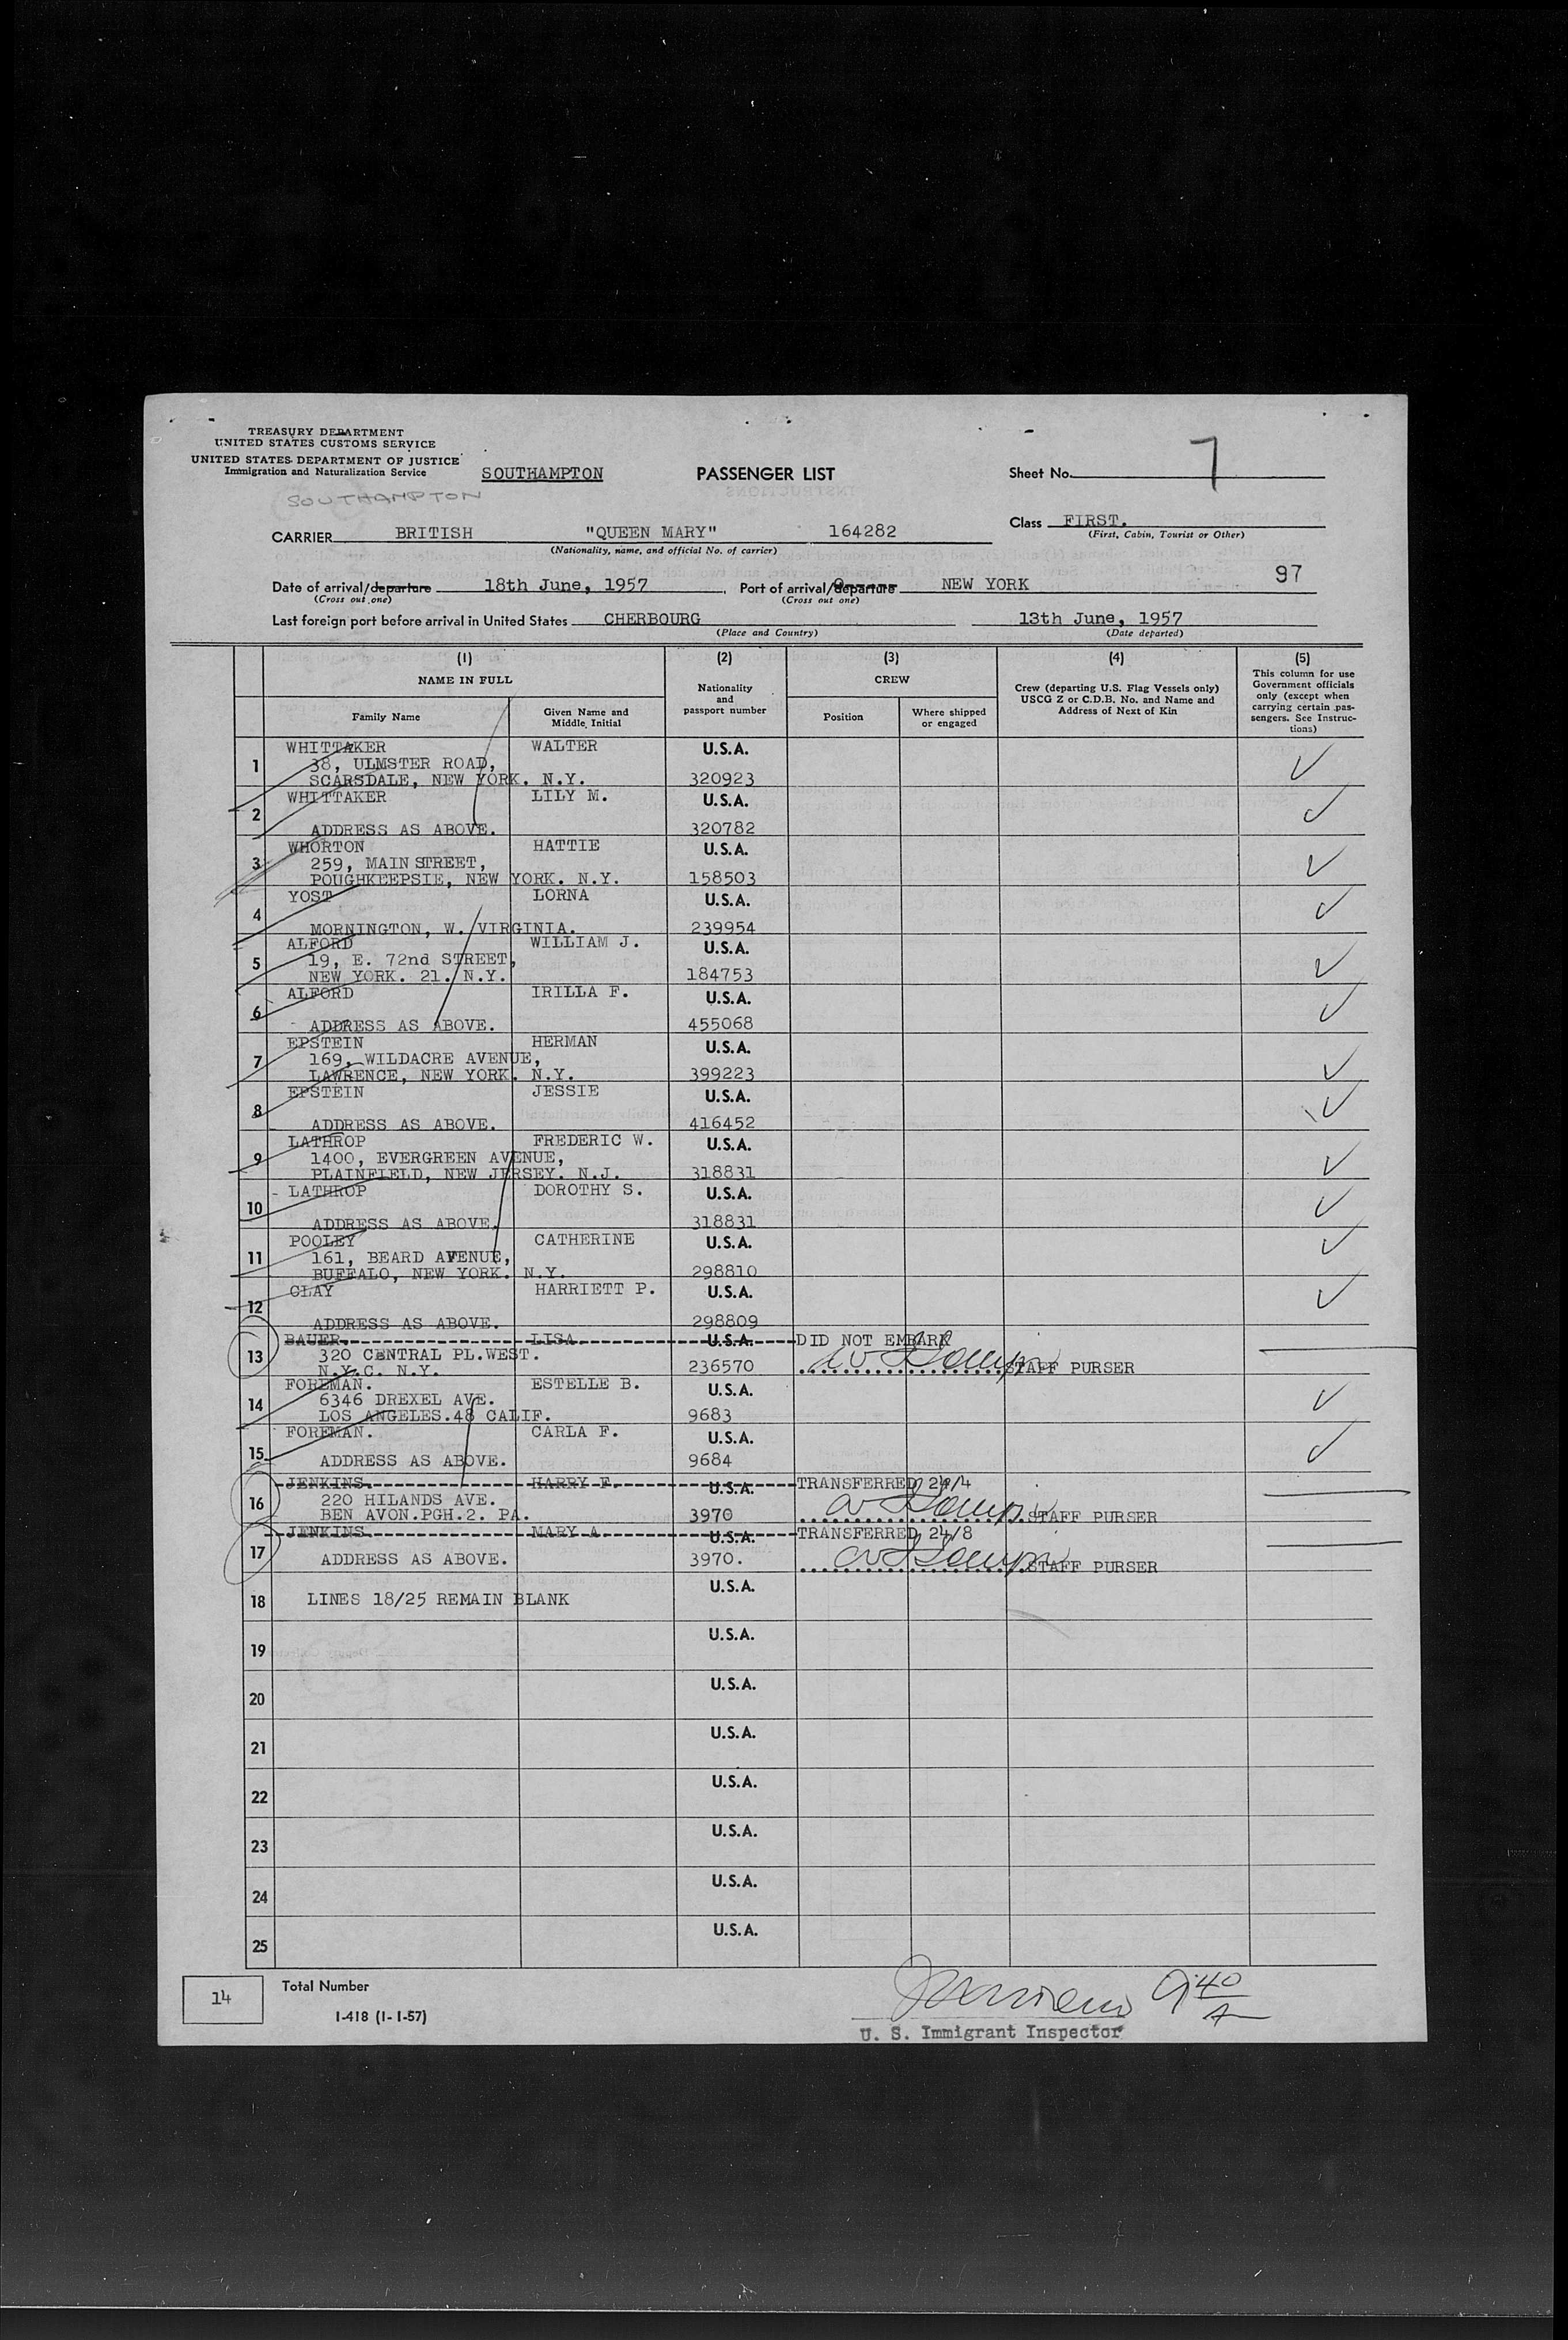 TREASURY DEPARTMENT
UNITED STATES CUSTOMS SERVICE
UNITED STATES DEPARTMENT OF JUSTICE
Immigration and Naturalization Service
SOUTHAMPTON
PASSENGER LIST
Sheet No. 7
SOUTHAMPTON
CARRIER BRITISH "QUEEN MARY" 164282
(Nationality, name, and official No. of carrier)
Class FIRST.
(First, Cabin, Tourist or Other)
97
Date of arrival/departure 18th June, 1957, Port of arrival/departure NEW YORK
(Cross out one) (Cross out one)
Last foreign port before arrival in United States CHERBOURG 13th June, 1957
(Place and Country) (Date departed)
(1) (2) (3) (4) (5)
NAME IN FULL
Family Name
Given Name and Middle Initial
Nationality and passport number
CREW
Position
Where shipped or engaged
Crew (departing U.S. Flag Vessels only) USCG Z or C.D.B. No. and Name and Address of Next of Kin
This column for use Government officials only (except when carrying certain pas-sengers. See Instruc-tions)
1 WHITTAKER WALTER U.S.A.
38, ULMSTER ROAD,
SCARSDALE, NEW YORK. N.Y. 320923
2 WHITTAKER LILY M. U.S.A.
ADDRESS AS ABOVE. 320782
3 WHORTON HATTIE U.S.A.
259, MAIN STREET,
POUGHKEEPSIE, NEW YORK. N.Y. 158503
4 YOST LORNA U.S.A.
MORNINGTON, W. VIRGINIA. 239954
5 ALFORD WILLIAM J. U.S.A.
19, E. 72nd STREET,
NEW YORK. 21. N.Y. 184753
6 ALFORD IRILLA F. U.S.A.
ADDRESS AS ABOVE. 455068
7 EPSTEIN HERMAN U.S.A.
169, WILDACRE AVENUE,
LAWRENCE, NEW YORK. N.Y. 399223
8 EPSTEIN JESSIE U.S.A.
ADDRESS AS ABOVE. 416452
9 LATHROP FREDERIC W. U.S.A.
1400, EVERGREEN AVENUE,
PLAINFIELD, NEW JERSEY. N.J. 318831
10 LATHROP DOROTHY S. U.S.A.
ADDRESS AS ABOVE. 318831
11 POOLEY CATHERINE U.S.A.
161, BEARD AVENUE,
BUFFALO, NEW YORK. N.Y. 298810
12 CLAY HARRIETT P. U.S.A.
ADDRESS AS ABOVE. 298809
13 BAUER LISA U.S.A. DID NOT EMBARK
320 CENTRAL PL.WEST.
N.Y.C. N.Y. 236570 STAFF PURSER
14 FOREMAN. ESTELLE B. U.S.A.
6346 DREXEL AVE.
LOS ANGELES.48 CALIF. 9683
15 FOREMAN. CARLA F. U.S.A.
ADDRESS AS ABOVE. 9684
16 JENKINS. HARRY F. U.S.A. TRANSFERRED 24/4
220 HILANDS AVE.
BEN AVON.PGH.2. PA. 3970 STAFF PURSER
17 JENKINS MARY A. U.S.A. TRANSFERRED 24/8
ADDRESS AS ABOVE. 3970. STAFF PURSER
18 LINES 18/25 REMAIN BLANK U.S.A.
19 U.S.A.
20 U.S.A.
21 U.S.A.
22 U.S.A.
23 U.S.A.
24 U.S.A.
25 U.S.A.
14 Total Number
I-418 (1-1-57)
U. S. Immigrant Inspector